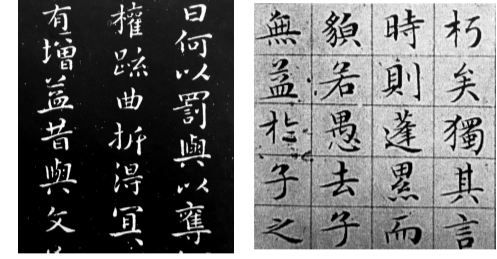 曰何以罰與以奪
權疏曲折得冝
有增益昔與文
朽矣獨其言
時則蓬累而
䫉若愚去子
無益扵子之